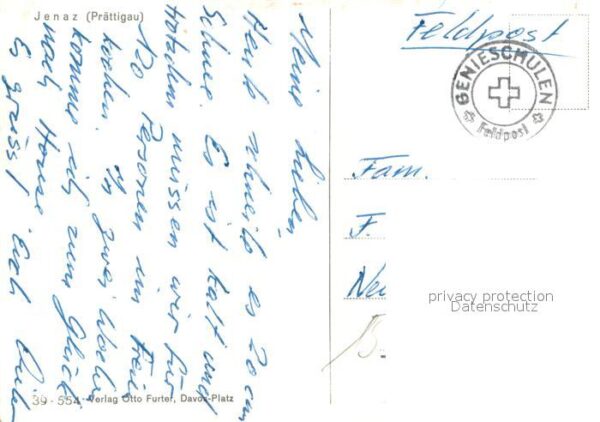 Jenaz (Prättigau)
Meine Lieben,
Heute schneit es 20 cm
Schnee. Es ist kalt und
trotzdem müssen wir für
120 Personen im Freien
kochen. In zwei Wochen
komme ich zum Glück
nach Hause
Es grüsst Euch
Feldpost
GENIESCHULEN
Feldpost
Fam.
F.
privacy protection
Datenschutz
39 - 554 Verlag Otto Furter, Davos-Platz